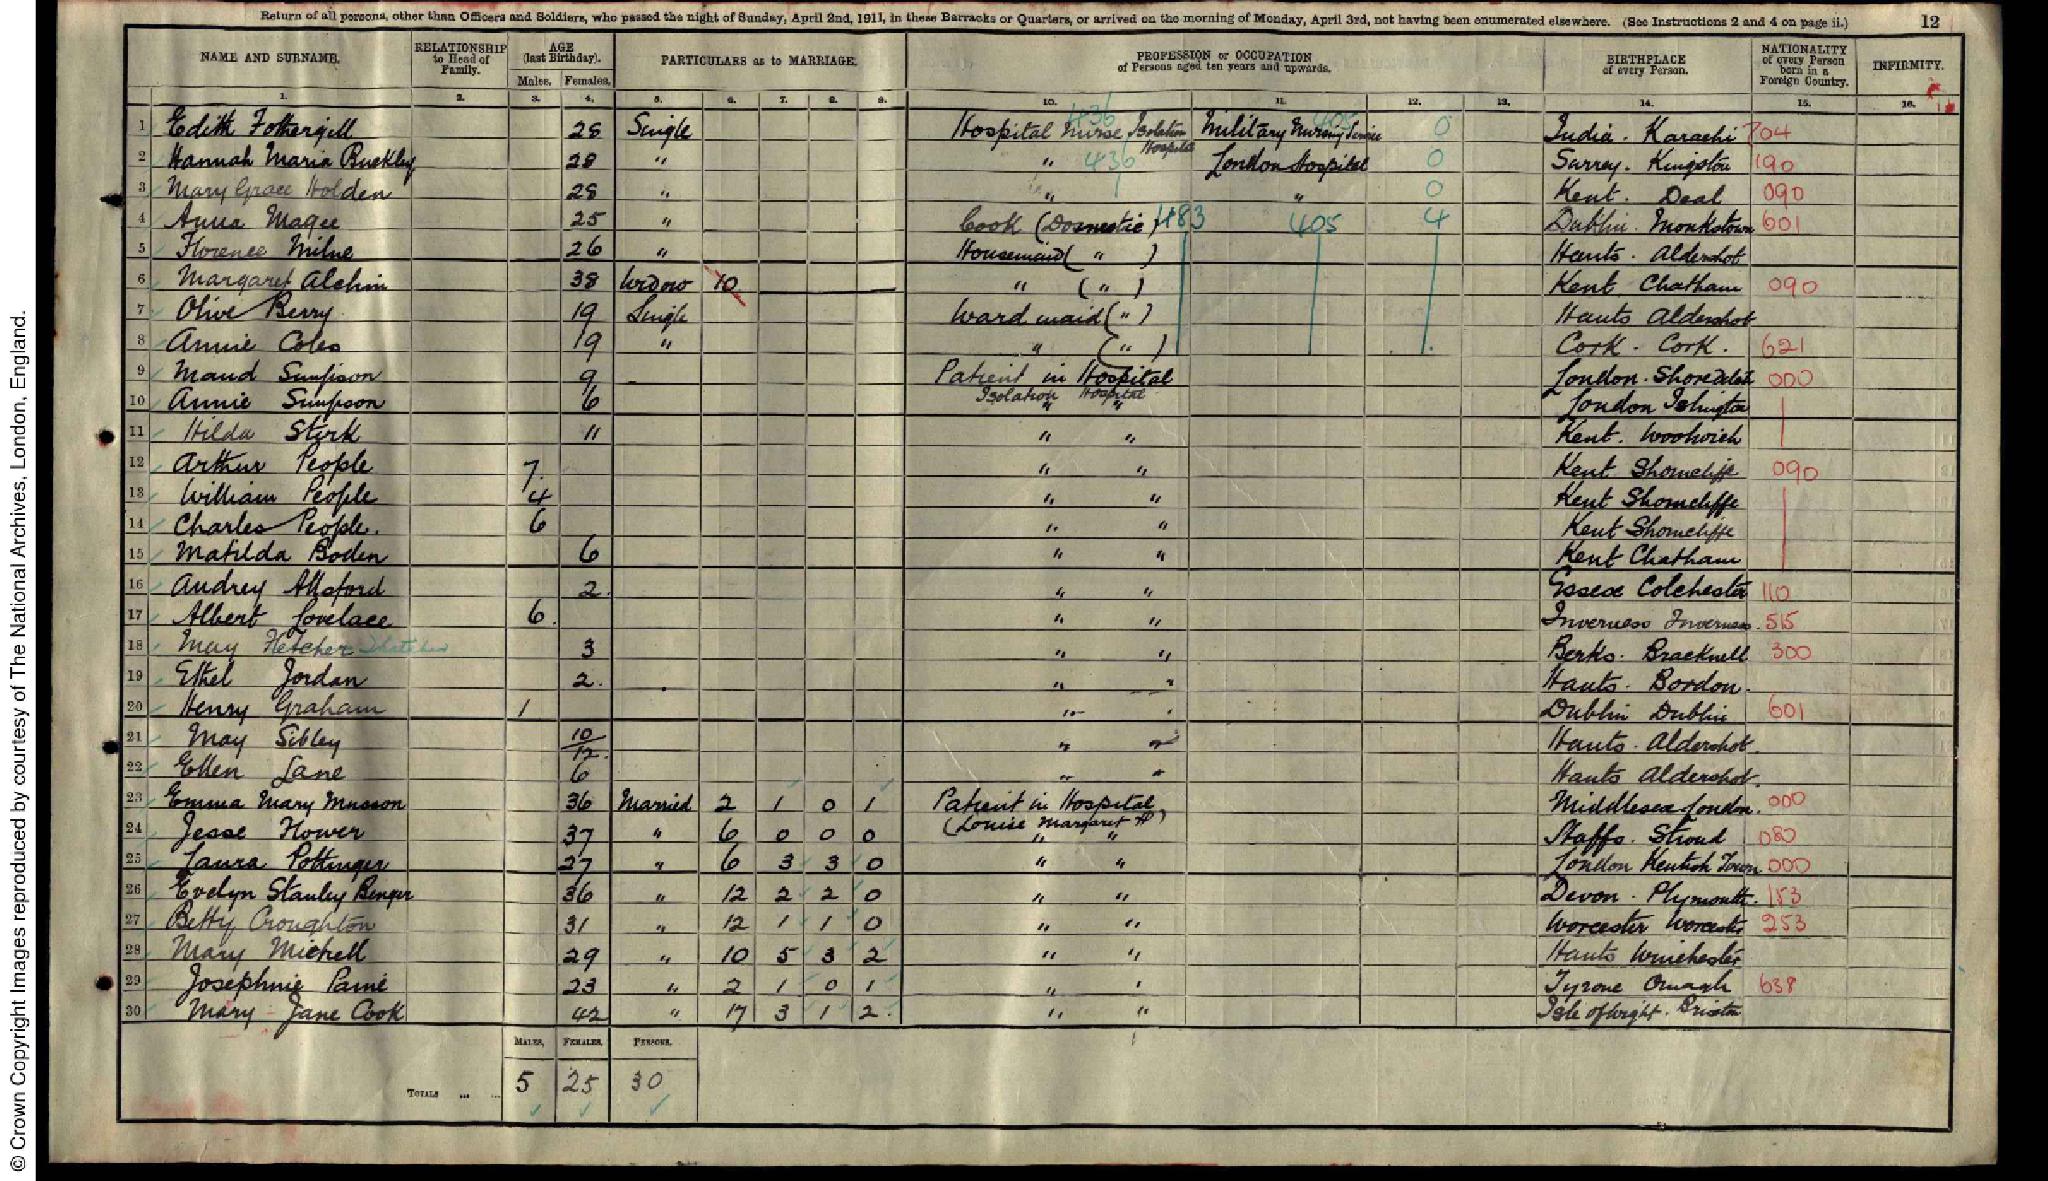 Return of all persons, other than Officers and Soldiers, who passed the night of Sunday, April 2nd, 1911, in these Barracks or Quarters, or arrived on the morning of Monday, April 3rd, not having been enumerated elsewhere. (See Instructions 2 and 4 on page ii.) 12
NAME AND SURNAME. RELATIONSHIP to Head of Family. AGE (last Birthday). Males. Females. PARTICULARS as to MARRIAGE. PROFESSION or OCCUPATION of Persons aged ten years and upwards. BIRTHPLACE of every Person. NATIONALITY of every Person born in a Foreign Country. INFIRMITY.
1. 2. 3. 4. 5. 6. 7. 8. 9. 10. 11. 12. 13. 14. 15. 16.
1 Edith Fothergill 28 Single Hospital Nurse Isolation Hospital 436 Military Nursing Service 405 0 India. Karachi 704
2 Hannah Maria Buckley 28 " " 436 London Hospital 0 Surrey. Kingston 190
3 Mary Grace Holden 28 " " " 0 Kent. Deal 090
4 Anna Magee 25 " Cook (Domestic) 483 405 4 Dublin. Monkstown 601
5 Florence Milne 26 " Housemaid ( " ) Hants. Aldershot
6 Margaret Alchin 38 Widow 10 " ( " ) Kent Chatham 090
7 Olive Berry 19 Single Ward maid ( " ) Hants Aldershot
8 Annie Coles 19 " " ( " ) Cork. Cork. 621
9 Maud Simpson 9 - Patient in Hospital London. Shoreditch 000
10 Annie Simpson 6 Isolation Hospital " " London Islington
11 Hilda Stirk 11 " " Kent. Woolwich
12 Arthur People 7. " " Kent Shorncliffe 090
13 William People 4 " " Kent Shorncliffe
14 Charles People. 6 " " Kent Shorncliffe
15 Matilda Boden 6 " " Kent Chatham
16 Audrey 2. " " Essex Colchester 110
17 Albert Lovelace 6. " " Inverness Inverness. 515
18 May Fletcher Thatcher 3 " " Berks. Bracknell 300
19 Ethel Jordan 2. " " Hants. Bordon.
20 Henry Graham 1 " " Dublin Dublin 601
21 May Sibley 10/12 " " Hants. Aldershot
22 Ellen Lane 6 " " Hants Aldershot.
23 Emma Mary Musson 36 Married 2 1 0 1 Patient in Hospital (Louise Margaret H) Middlesex London. 000
24 Jesse Flower 37 " 6 0 0 0 " " Staffs. Stroud 080
25 Laura Pottinger 27 " 6 3 3 0 " " London Kentish Town 000
26 Evelyn Stanley Benger 36 " 12 2 2 0 " " Devon. Plymouth. 153
27 Betty Croughton 31 " 12 1 1 0 " " Worcester Worcester 253
28 Mary Michell 29 " 10 5 3 2 " " Hants Winchester
29 Josephine Paine 23 " 2 1 0 1 " " Tyrone Omagh 638
30 Mary Jane Cook 42 " 17 3 1 2. " " Isle of Wight. Brixton
MALES. FEMALES. PERSONS.
TOTALS ... ... 5 25 30
© Crown Copyright Images reproduced by courtesy of The National Archives, London, England.